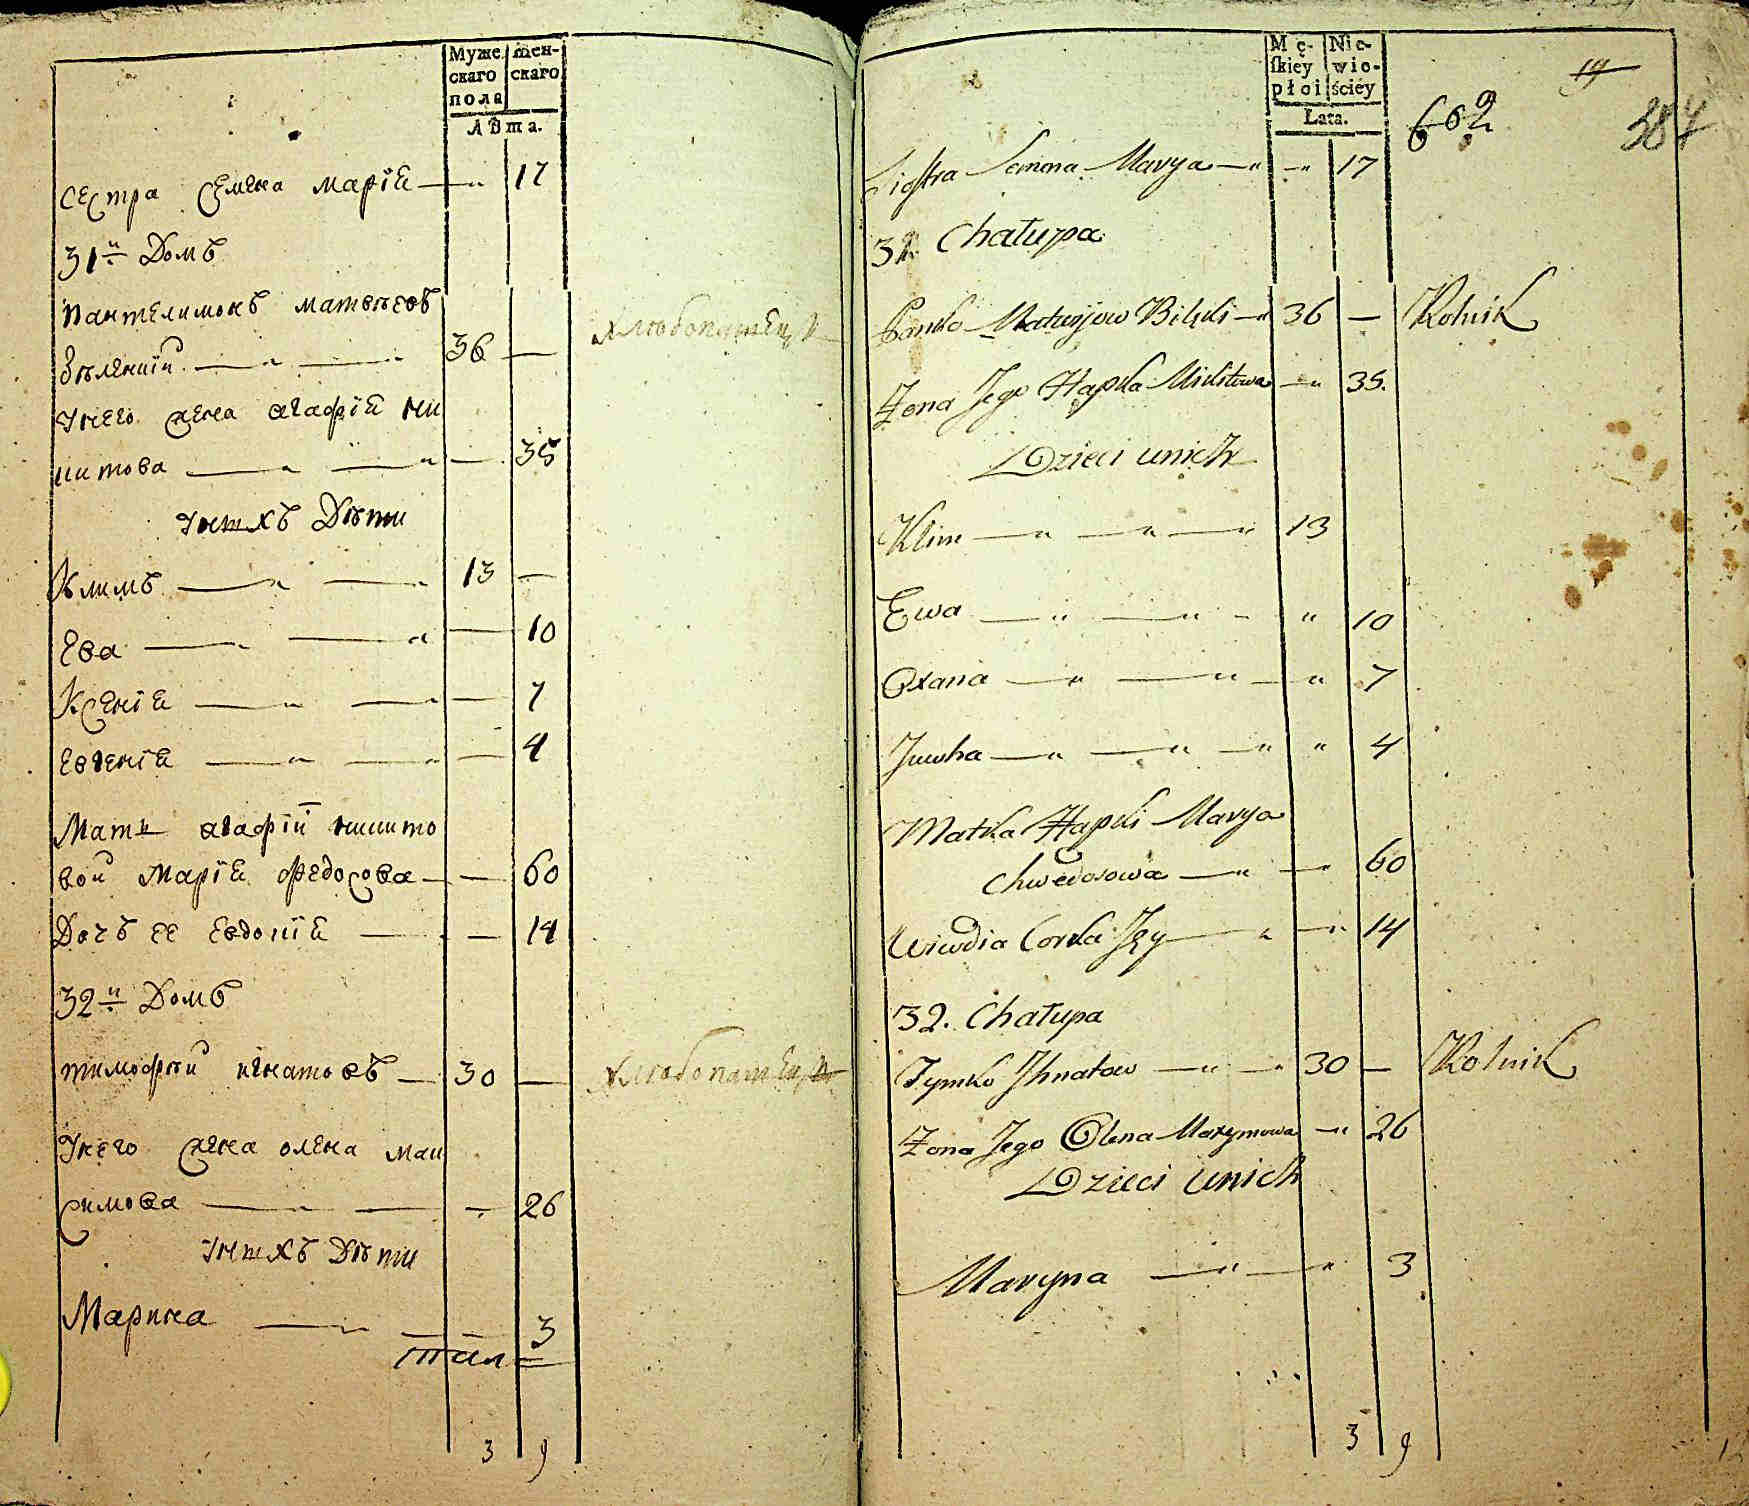 Муже-
скаго
пола
жен-
скаго
лѣта.
сестра семена марія — „ 17
31й домъ
пантелимонъ матвѣевъ
36 —
хлебопашецъ
унего жена агафія ни
китова — „ — „ — 35
унихъ дѣти
Климъ — „ — „ 13 —
Ева — „ — „ — 10
Ксенія — „ — „ — 7
евгенія — „ — „ — 4
Мать агафіи никито
вой марія федосова — — 60
Дочъ ее евдокія — — 14
32й домъ
тимофѣй игнатовъ — 30 —
хлебопашецъ
унего жена олена мак
симова — „ — „ 26
унихъ дѣти
Марина — „ — — 3
3 9
Mę-
skiey
płci
Nie-
wie-
ściéy
Lata.
14
662
384
Siostra Semena Marya — „ — „ 17
31. Chałupa
Panko Matwijow Bilski — „ 36 — Rolnik
Żona Jego Hapka Mikitowa — „ 35.
Dzieci unich
Klim — „ — „ — „ 13
Ewa — „ — „ — „ 10
Oxana — „ — „ — „ 7
Juwha — „ — „ — „ „ 4
Matka Hapki Marya
Chwedosowa — „ — „ 60
Wiwdia Corka Jey — „ — „ 14
32. Chałupa
Tymko Jhnatow — „ — „ 30 — Rolnik
Żona Jego Olena Maxymowa — „ 26
Dzieci unich
Maryna — „ — „ 3
3 9